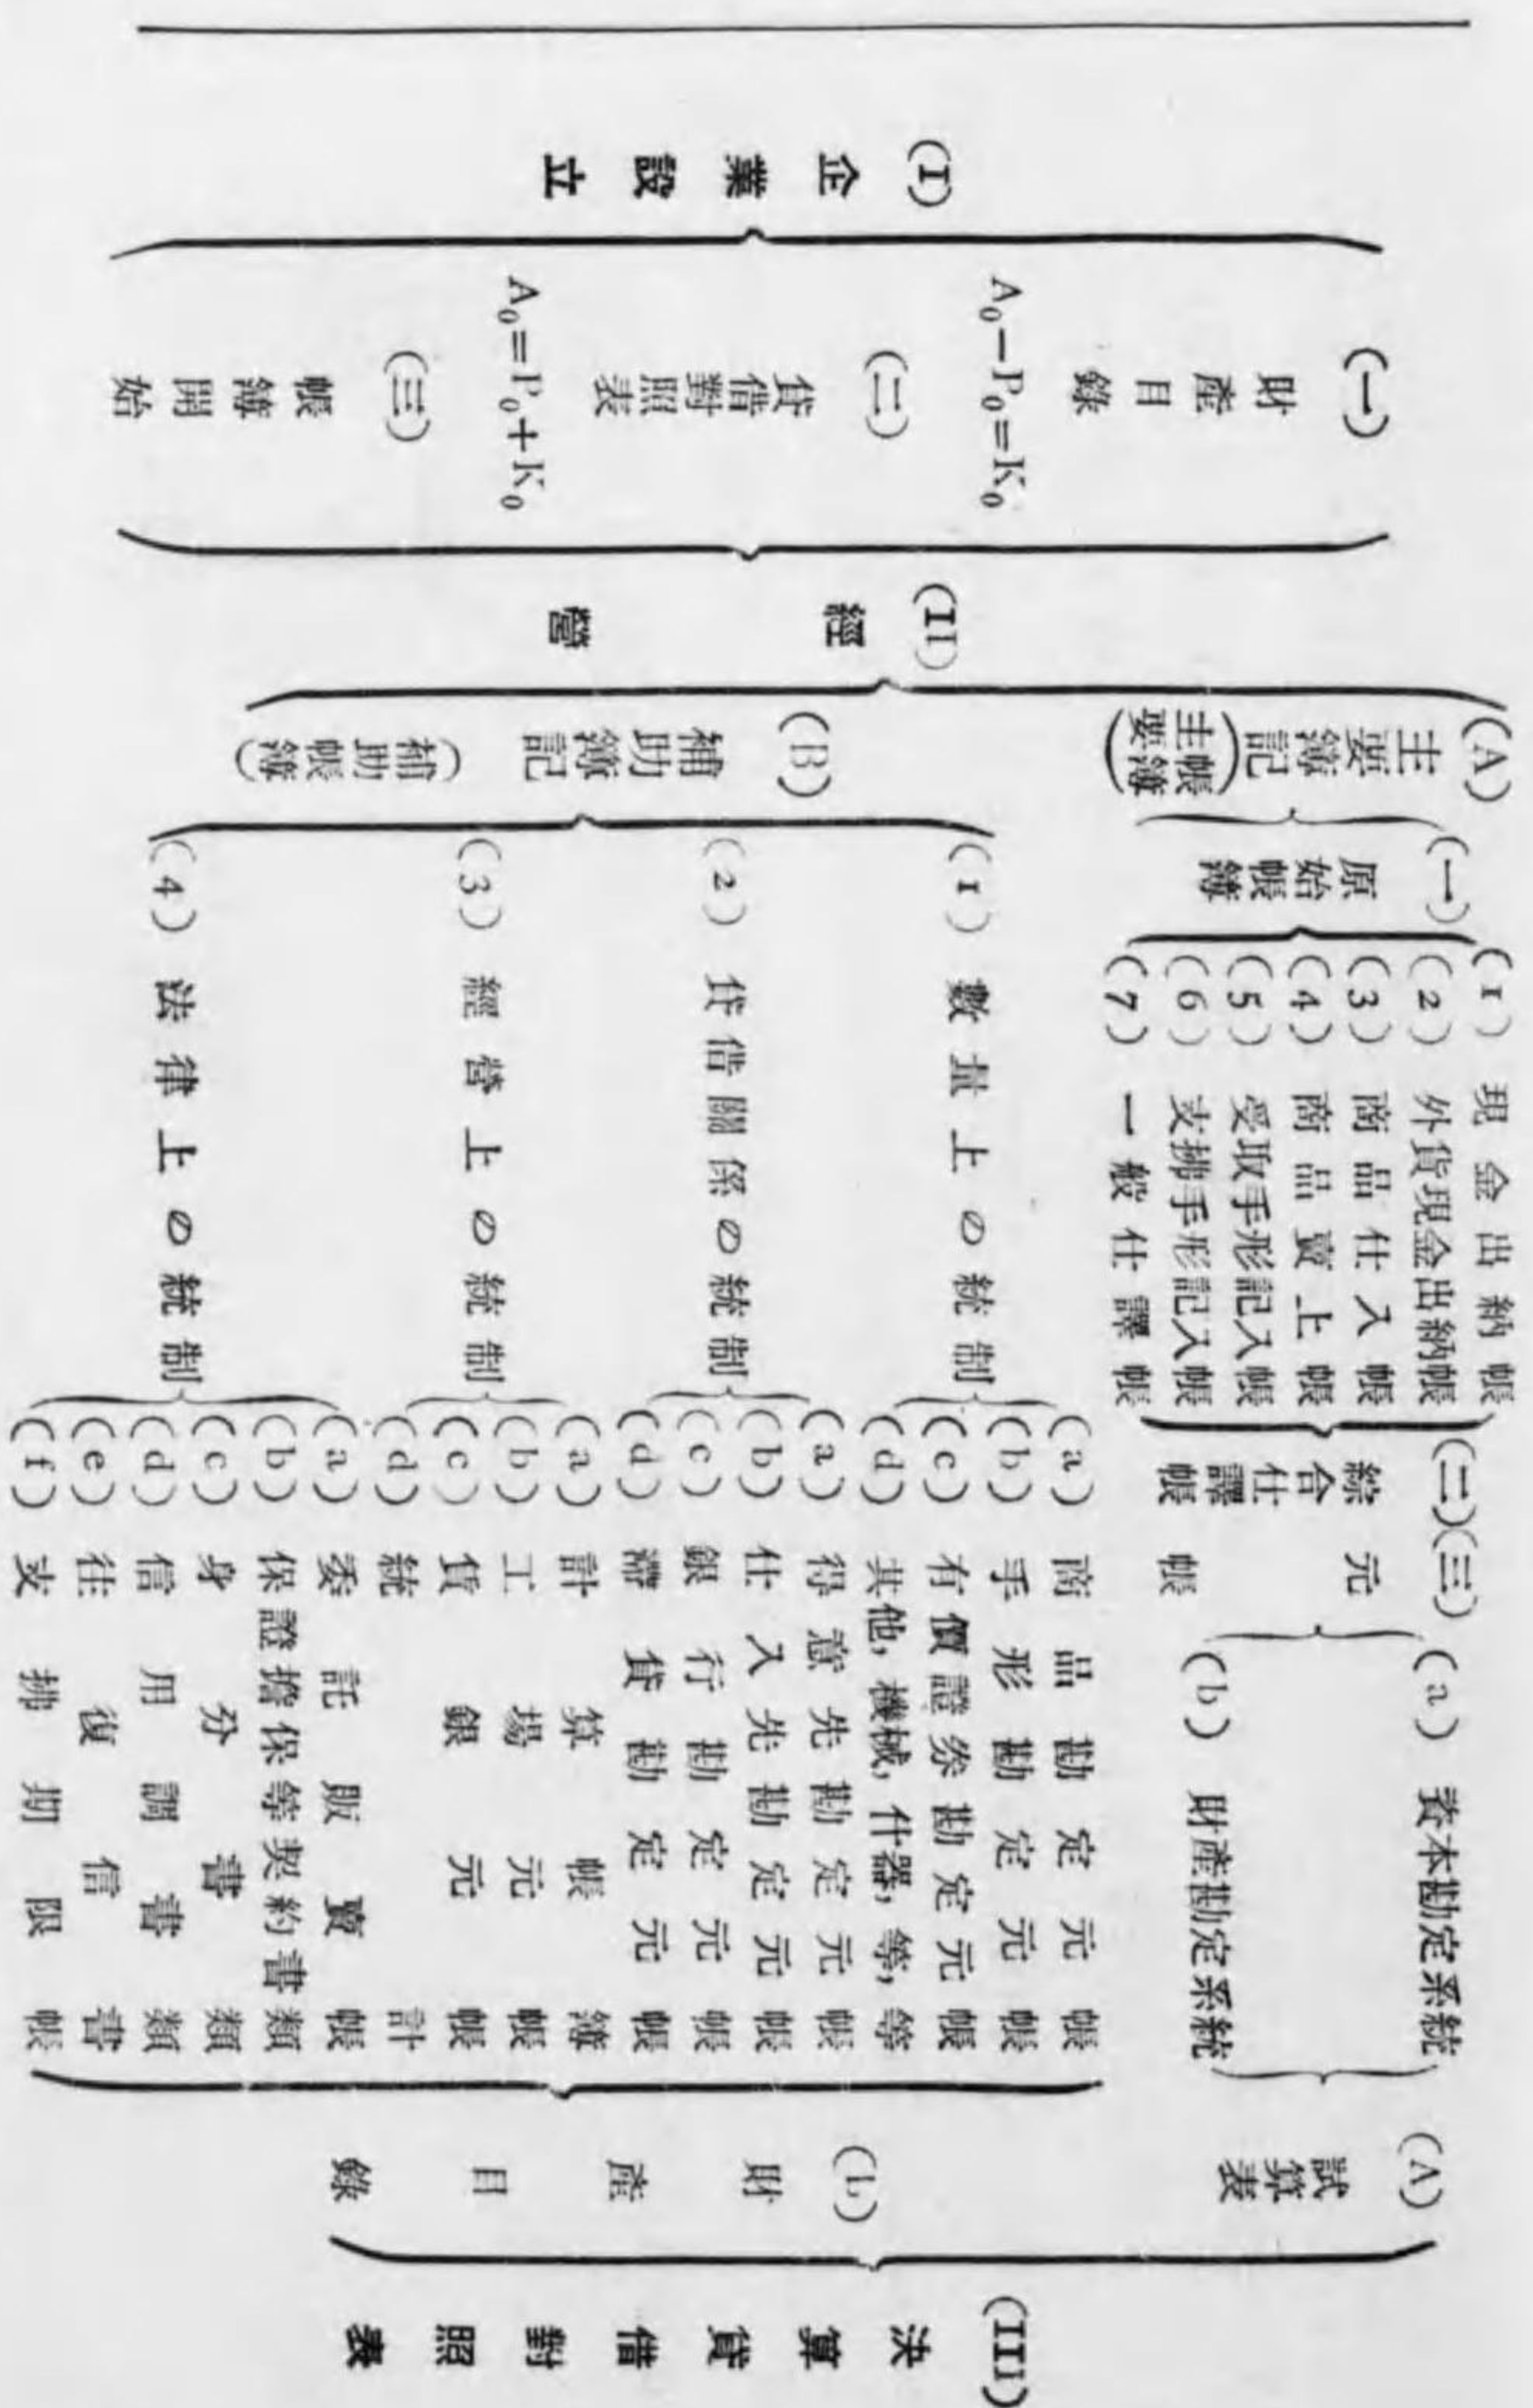 (I) 企業設立
(一) 財產目錄
A₀－P₀＝K₀
(二) 貸借對照表
A₀＝P₀＋K₀
(三) 帳簿開始
(II) 經營
(A) 主要簿記(主要帳簿)
(一) 原始帳簿
(1) 現金出納帳
(2) 外貨現金出納帳
(3) 商品仕入帳
(4) 商品賣上帳
(5) 受取手形記入帳
(6) 支拂手形記入帳
(7) 一般仕譯帳
(二) 綜合仕譯帳
(三) 元帳
(a) 資本勘定系統
(b) 財產勘定系統
(B) 補助簿記(補助帳簿)
(1) 數量上の統制
(a) 商品勘定元帳
(b) 手形勘定元帳
(c) 有價證券勘定元帳
(d) 其他, 機械, 什器, 等, 等
(2) 貸借關係の統制
(a) 得意先勘定元帳
(b) 仕入先勘定元帳
(c) 銀行勘定元帳
(d) 滯貸勘定元帳
(3) 經營上の統制
(a) 計算帳簿
(b) 工場元帳
(c) 賃銀元帳
(d) 統計
(4) 法律上の統制
(a) 委託販賣帳
(b) 保證擔保等契約書類
(c) 身分書類
(d) 信用調書類
(e) 往復信書
(f) 支拂期限帳
(A) 試算表
(b) 財產目錄
(III) 決算貸借對照表